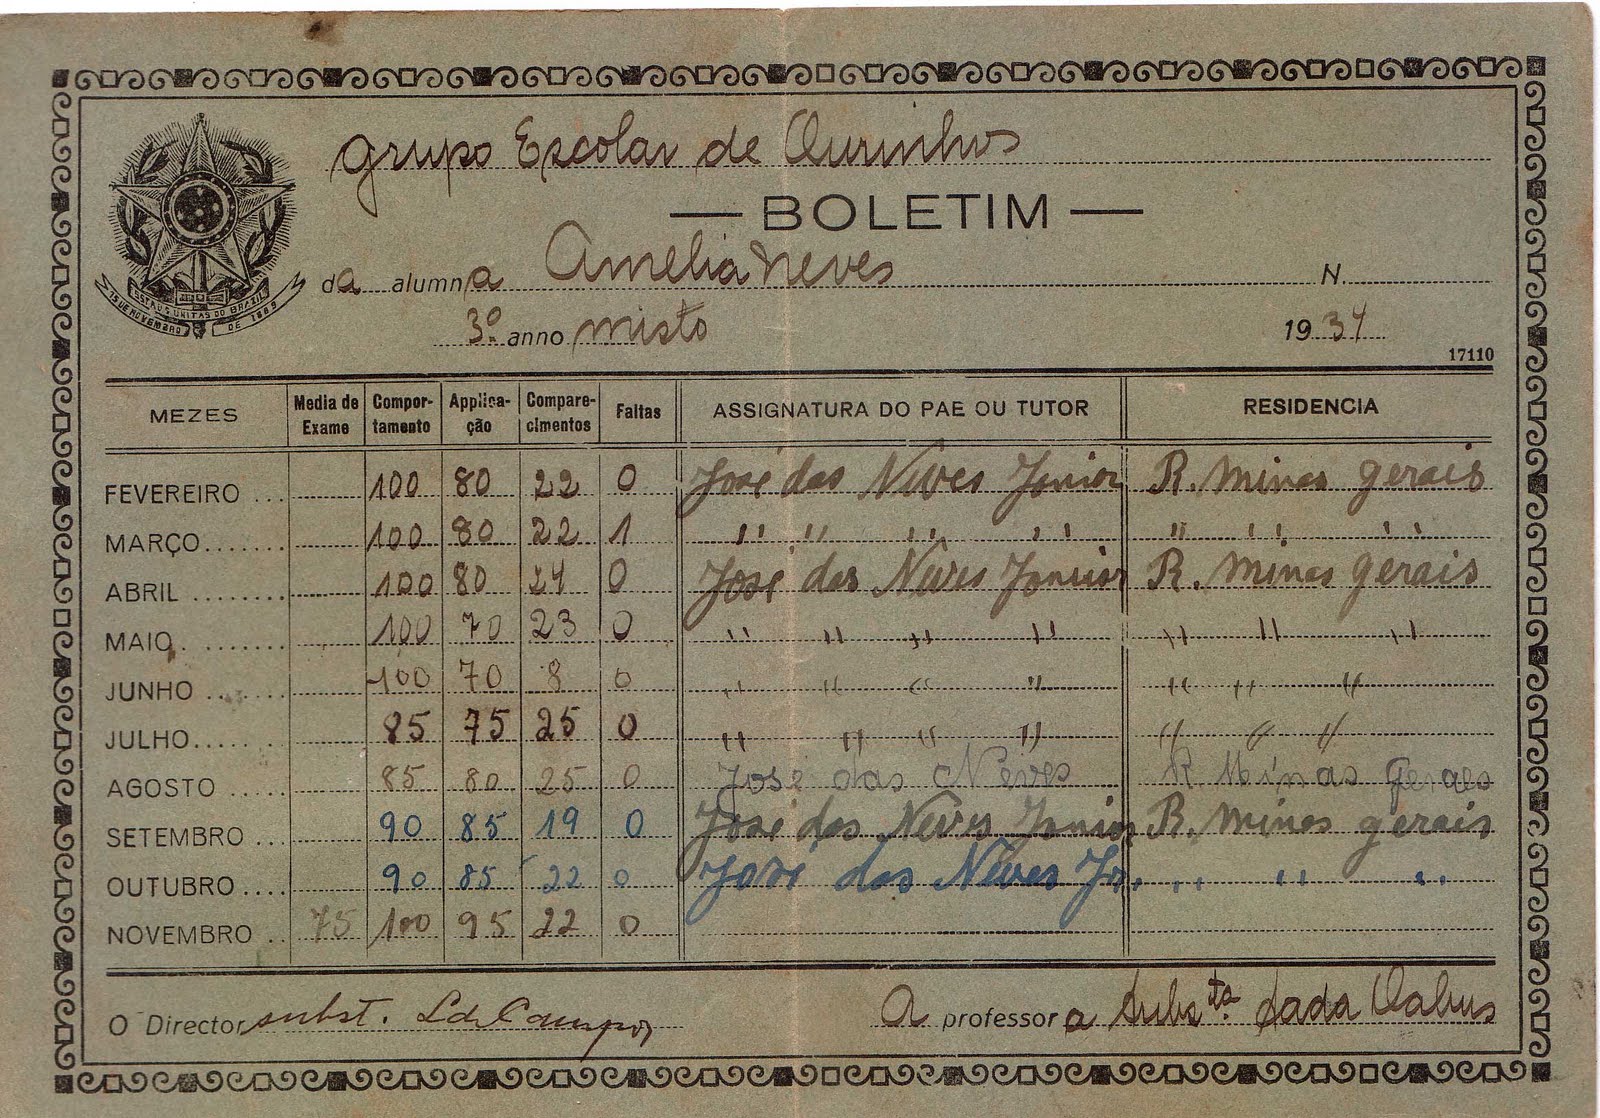 Grupo Escolar de Ourinhos
— BOLETIM —
da alumna Amelia Neves N.
3º anno misto 1934
17110
ESTADOS UNITAS DO BRAZIL
15 DE NOVEMBRO DE 1889
MEZES Media de Exame Comportamento Applicação Comparecimentos Faltas ASSIGNATURA DO PAE OU TUTOR RESIDENCIA
FEVEREIRO ... 100 80 22 0 José das Neves Junior R. Minas gerais
MARÇO....... 100 80 22 1 " " " " " " "
ABRIL ........ 100 80 24 0 José das Neves Junior R. Minas gerais
MAIO. ....... 100 70 23 0 " " " " " " "
JUNHO ...... 100 70 8 0 " " " " " " "
JULHO....... 85 75 25 0 " " " " " " "
AGOSTO ..... 85 80 25 0 José das Neves R Minas Geraes
SETEMBRO ... 90 85 19 0 José das Neves Junior R. Minas gerais
OUTUBRO .... 90 85 22 0 José das Neves Jr. " " "
NOVEMBRO .. 75 100 95 22 0
O Director subst. Campos A professora Subs.ta